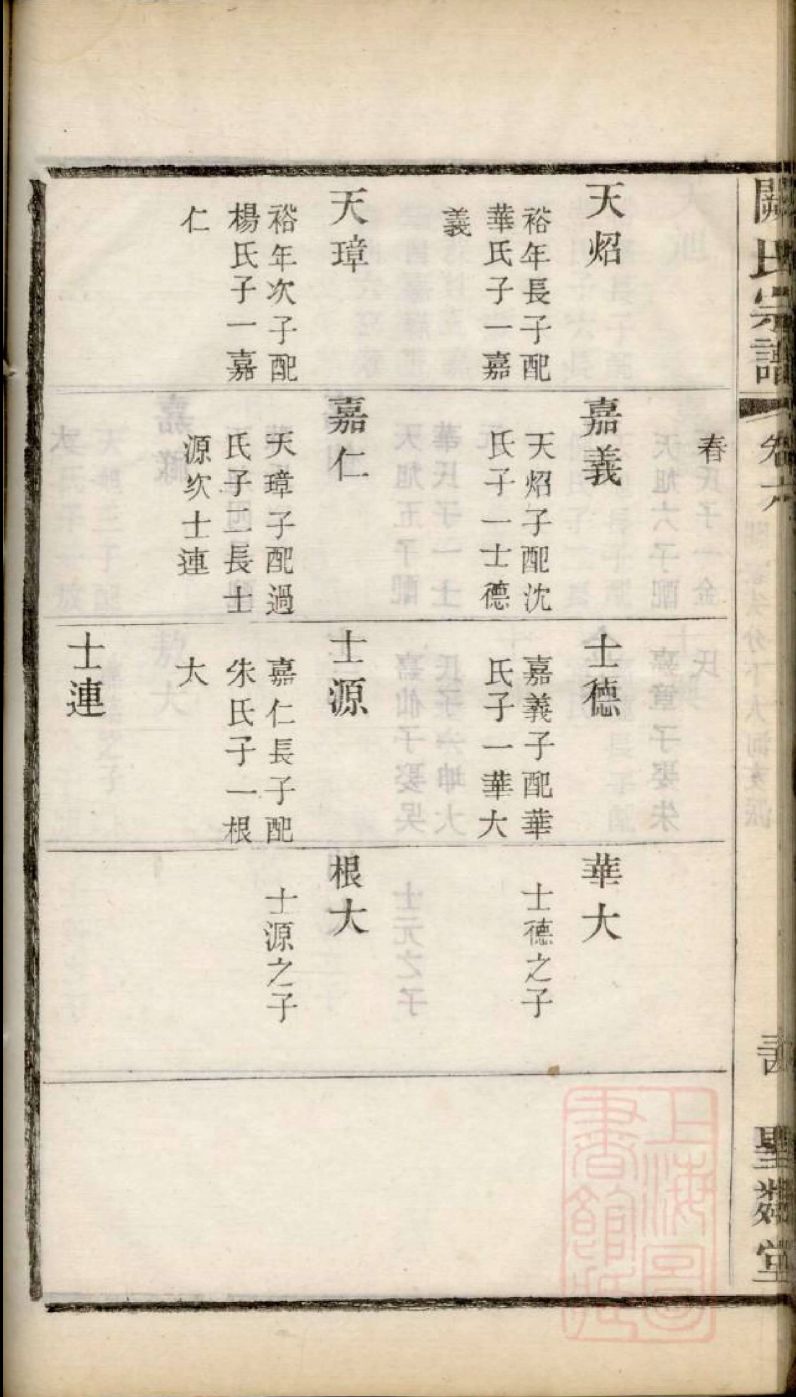 氏宗譜
卷六
天炤
裕年長子配
華氏子一嘉
義
天璋
裕年次子配
楊氏子一嘉
仁
春
嘉義
天炤子配沈
氏子一士德
嘉仁
天璋子配過
氏子二長士
源次士連
士德
嘉義子配華
氏子一華大
士源
嘉仁長子配
朱氏子一根
大
士連
華大
士德之子
根大
士源之子
堂
上海圖
書館藏